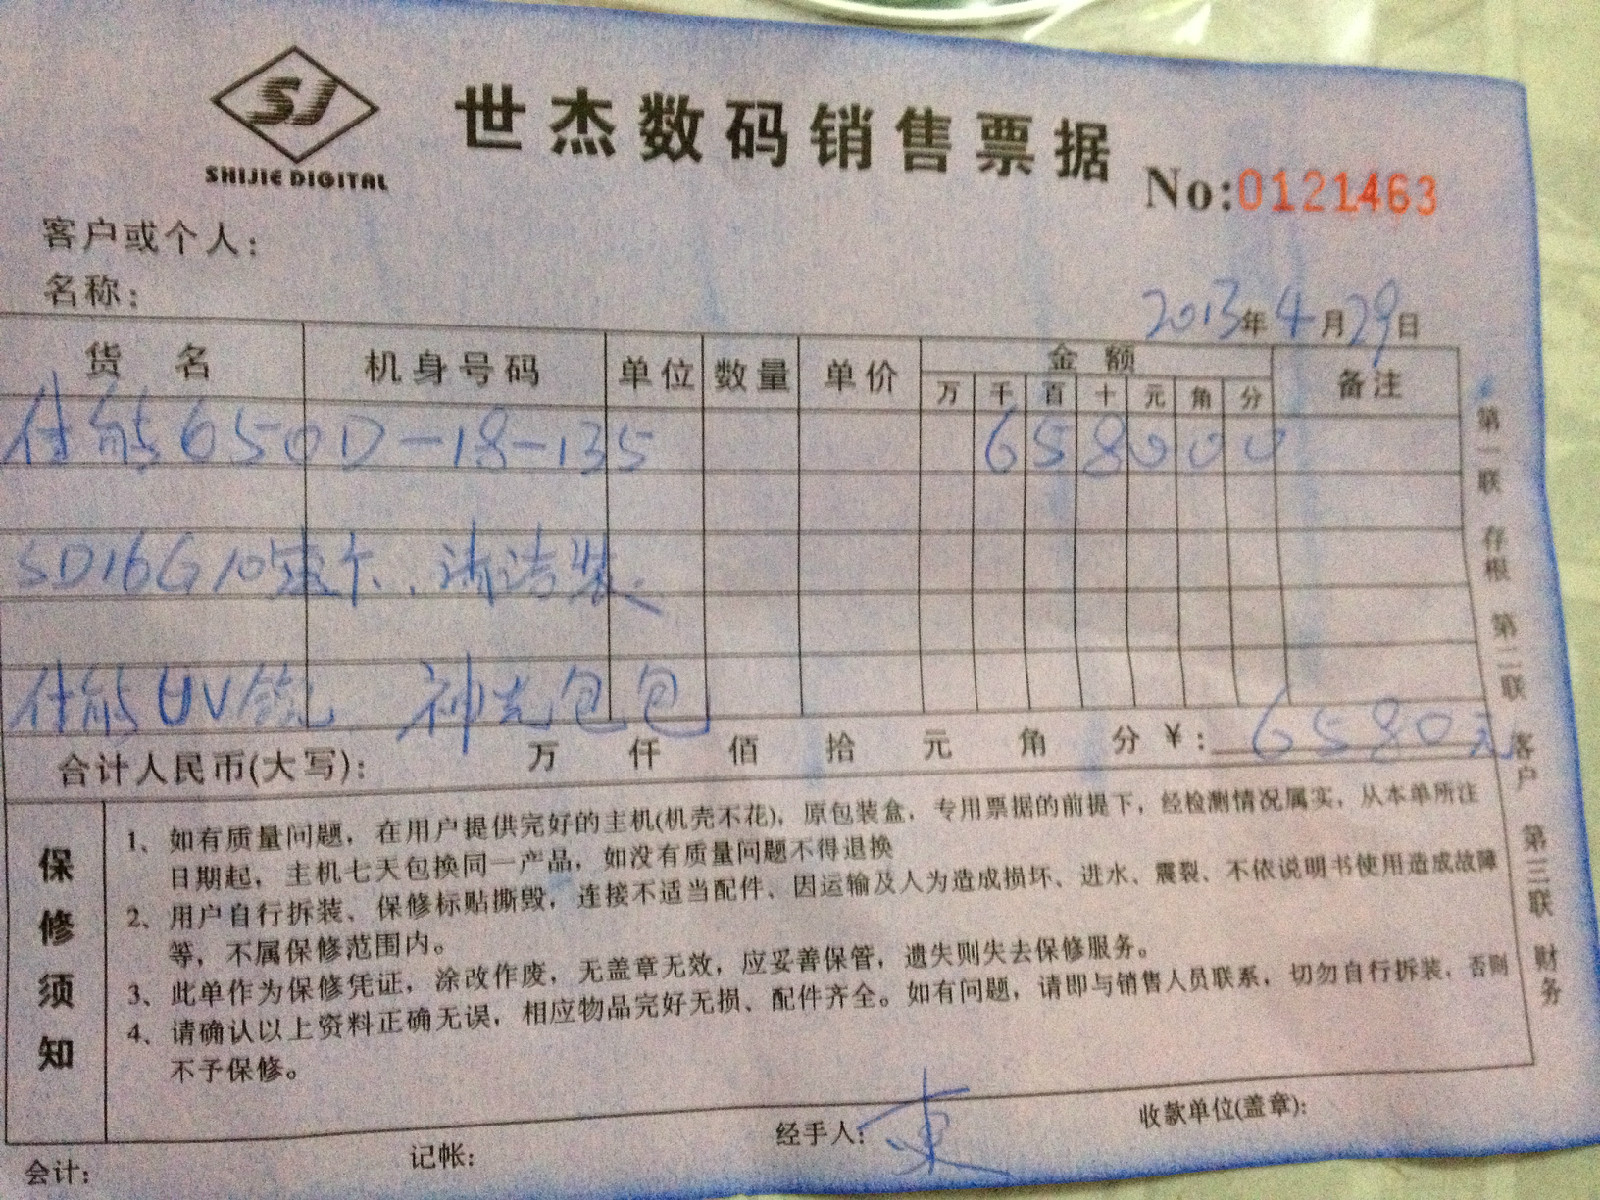 SJ
SHIJIE DIGITAL
世杰数码销售票据
No:0121463
客户或个人：
名称：
2013年4月29日
货 名 机身号码 单位 数量 单价 金 额 备注
万 千 百 十 元 角 分
佳能650D-18-135 6 5 8 0 0 0
SD16G10速卡..清洁装
佳能UV镜 神光包包
合计人民币(大写)： 万 仟 佰 拾 元 角 分 ￥：6580元
保修须知
1、如有质量问题，在用户提供完好的主机(机壳不花)，原包装盒，专用票据的前提下，经检测情况属实，从本单所注
日期起，主机七天包换同一产品，如没有质量问题不得退换
2、用户自行拆装、保修标贴撕毁，连接不适当配件、因运输及人为造成损坏、进水、震裂、不依说明书使用造成故障
等，不属保修范围内。
3、此单作为保修凭证，涂改作废，无盖章无效，应妥善保管，遗失则失去保修服务。
4、请确认以上资料正确无误，相应物品完好无损、配件齐全。如有问题，请即与销售人员联系，切勿自行拆装，否则
不予保修。
会计： 记帐： 经手人： 收款单位(盖章)：
第一联 存根 第二联 客户 第三联 财务